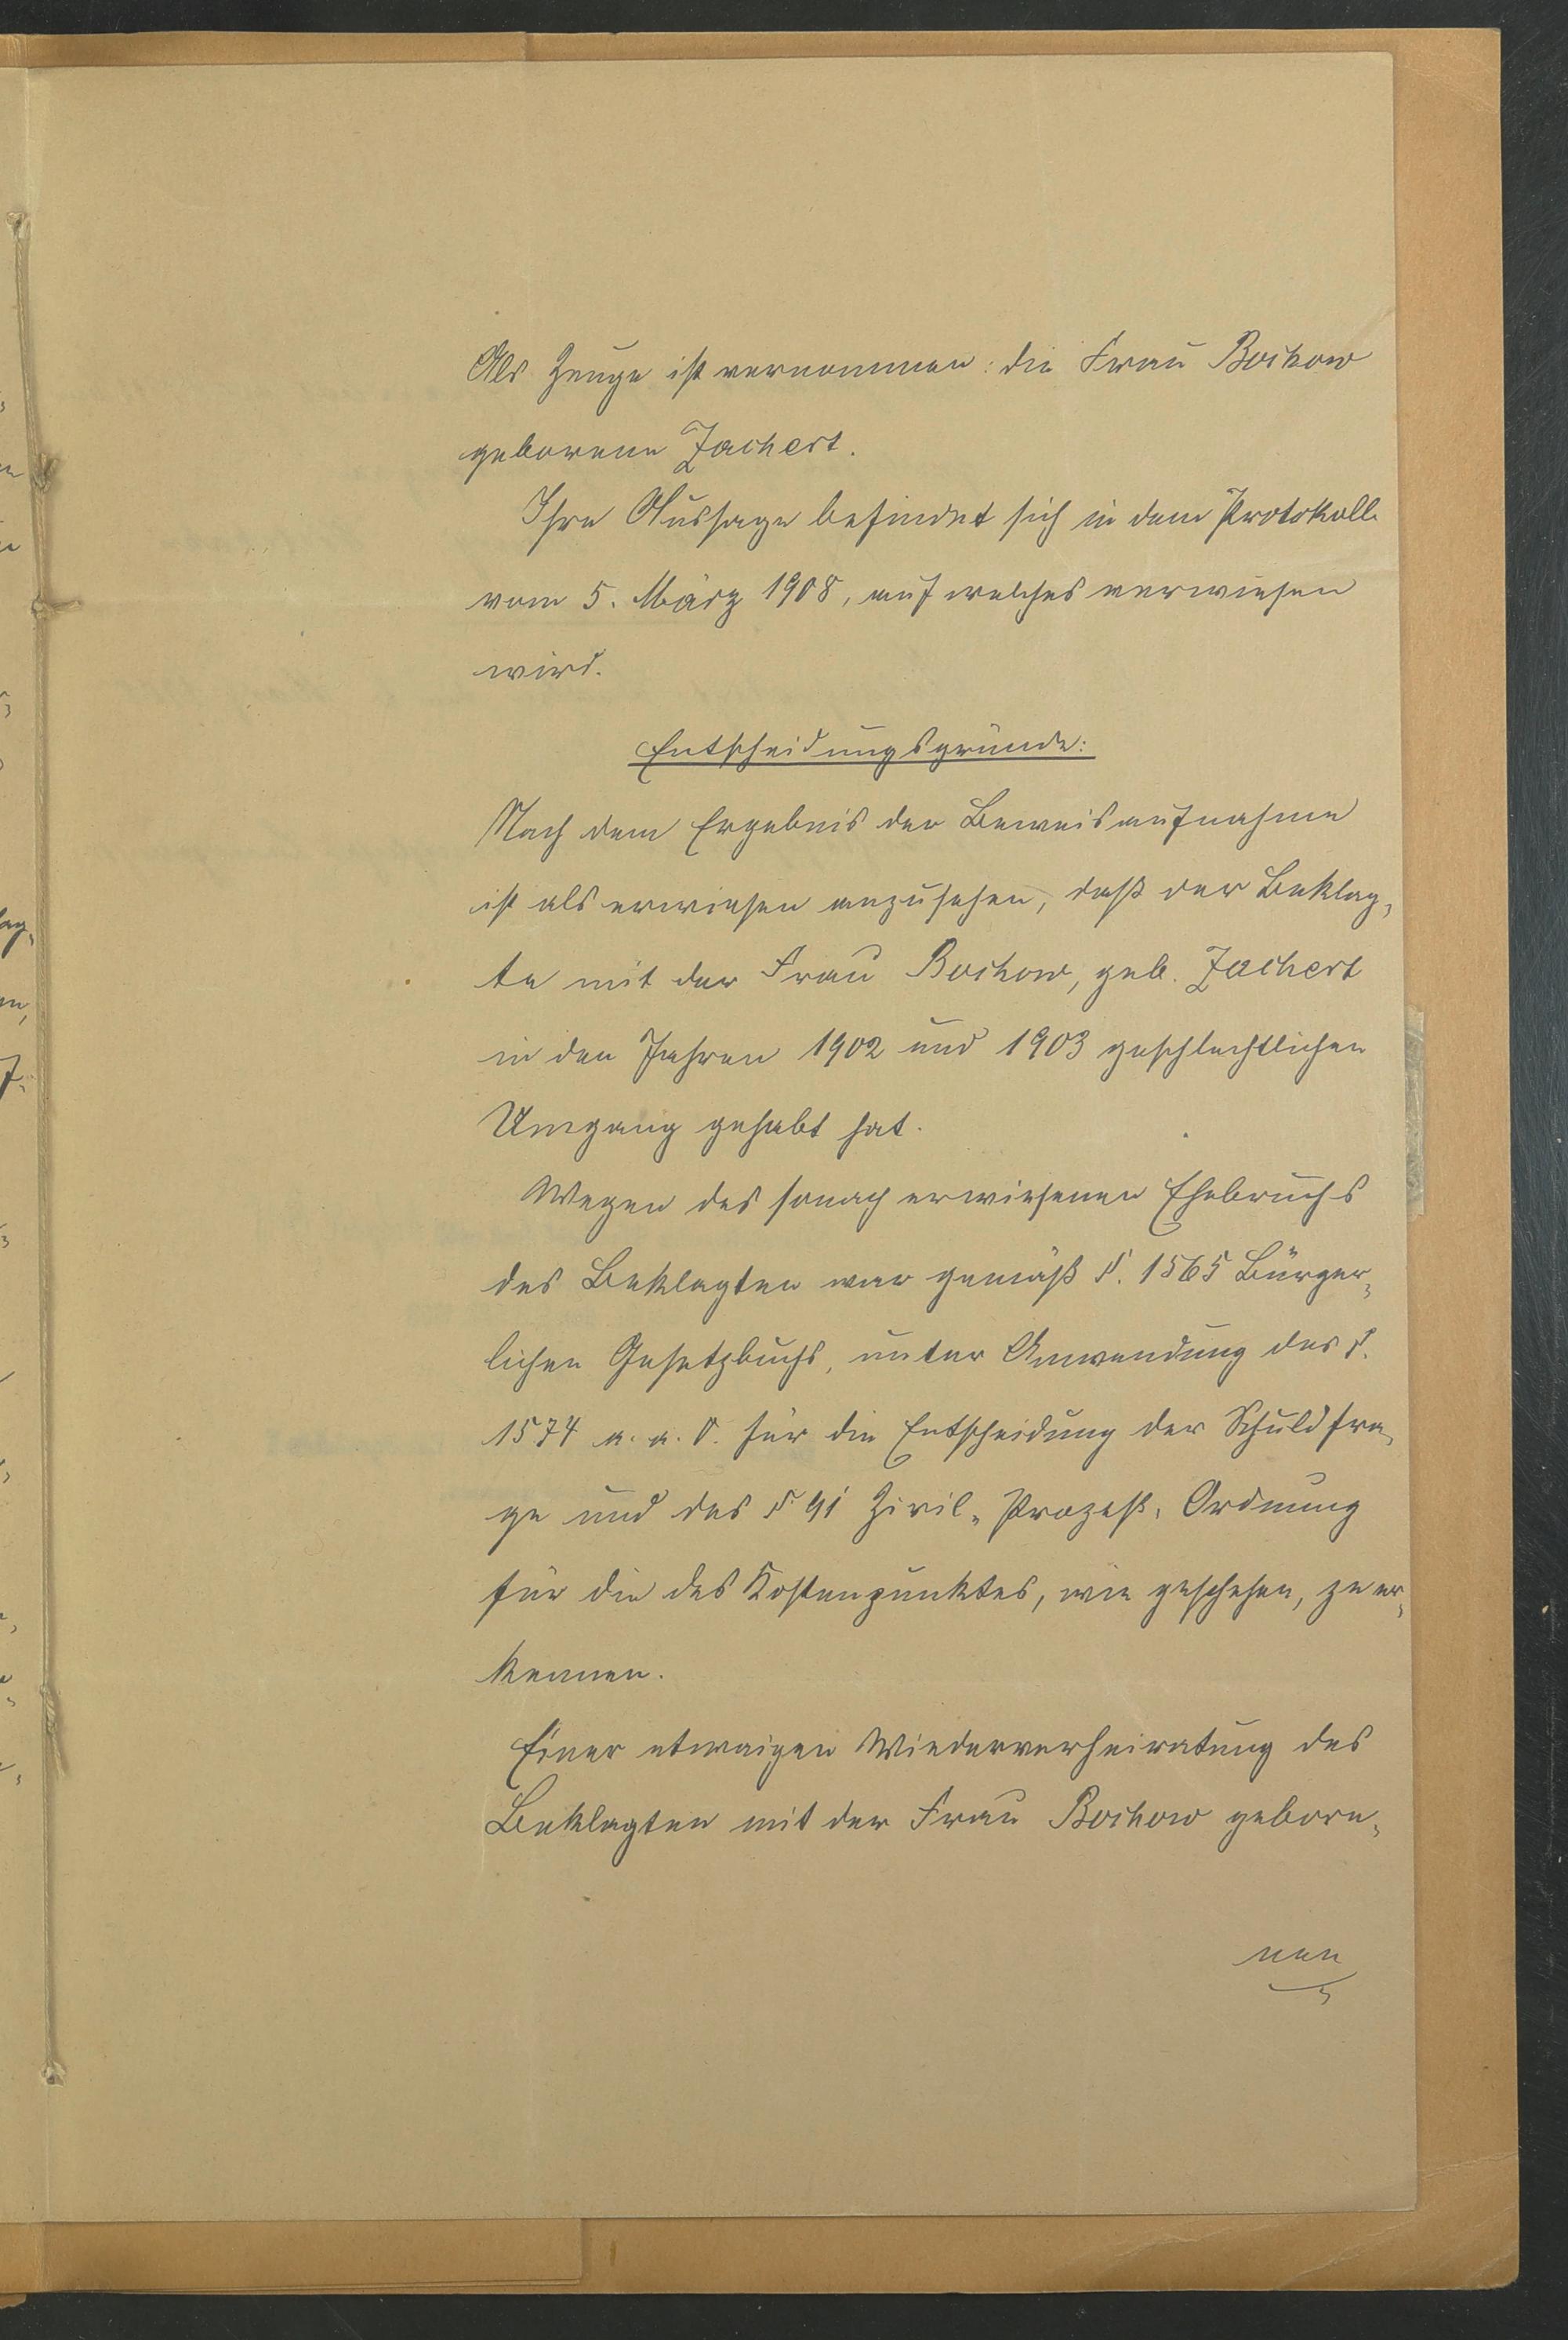 Als Zeuge ist vernommen: die Frau Bochow
geborene Zachert.
Ihre Aussage befindet sich in dem Protokoll
vom 5. März 1908, auf welches verwiesen
wird.
Entscheidungsgründe:
Nach dem Ergebnis der Beweisaufnahme
ist als erwiesen anzusehen, daß der Beklag-
te mit der Frau Bochow, geb. Zachert
in den Jahren 1902 und 1903 geschlechtlichen
Umgang gehabt hat.
Wegen des sonach erwiesenen Ehebruchs
des Beklagten war gemäß §. 1565 Bürger-
lichen Gesetzbuchs, unter Anwendung des §.
1574 a. a. O. für die Entscheidung der Schuldfra-
ge und des § 91 Zivil-Prozeß-Ordnung
für die des Kostenpunktes, wie geschehen, zu er-
kennen.
Einer etwaigen Wiederverheiratung des
Beklagten mit der Frau Bochow gebore-
nen